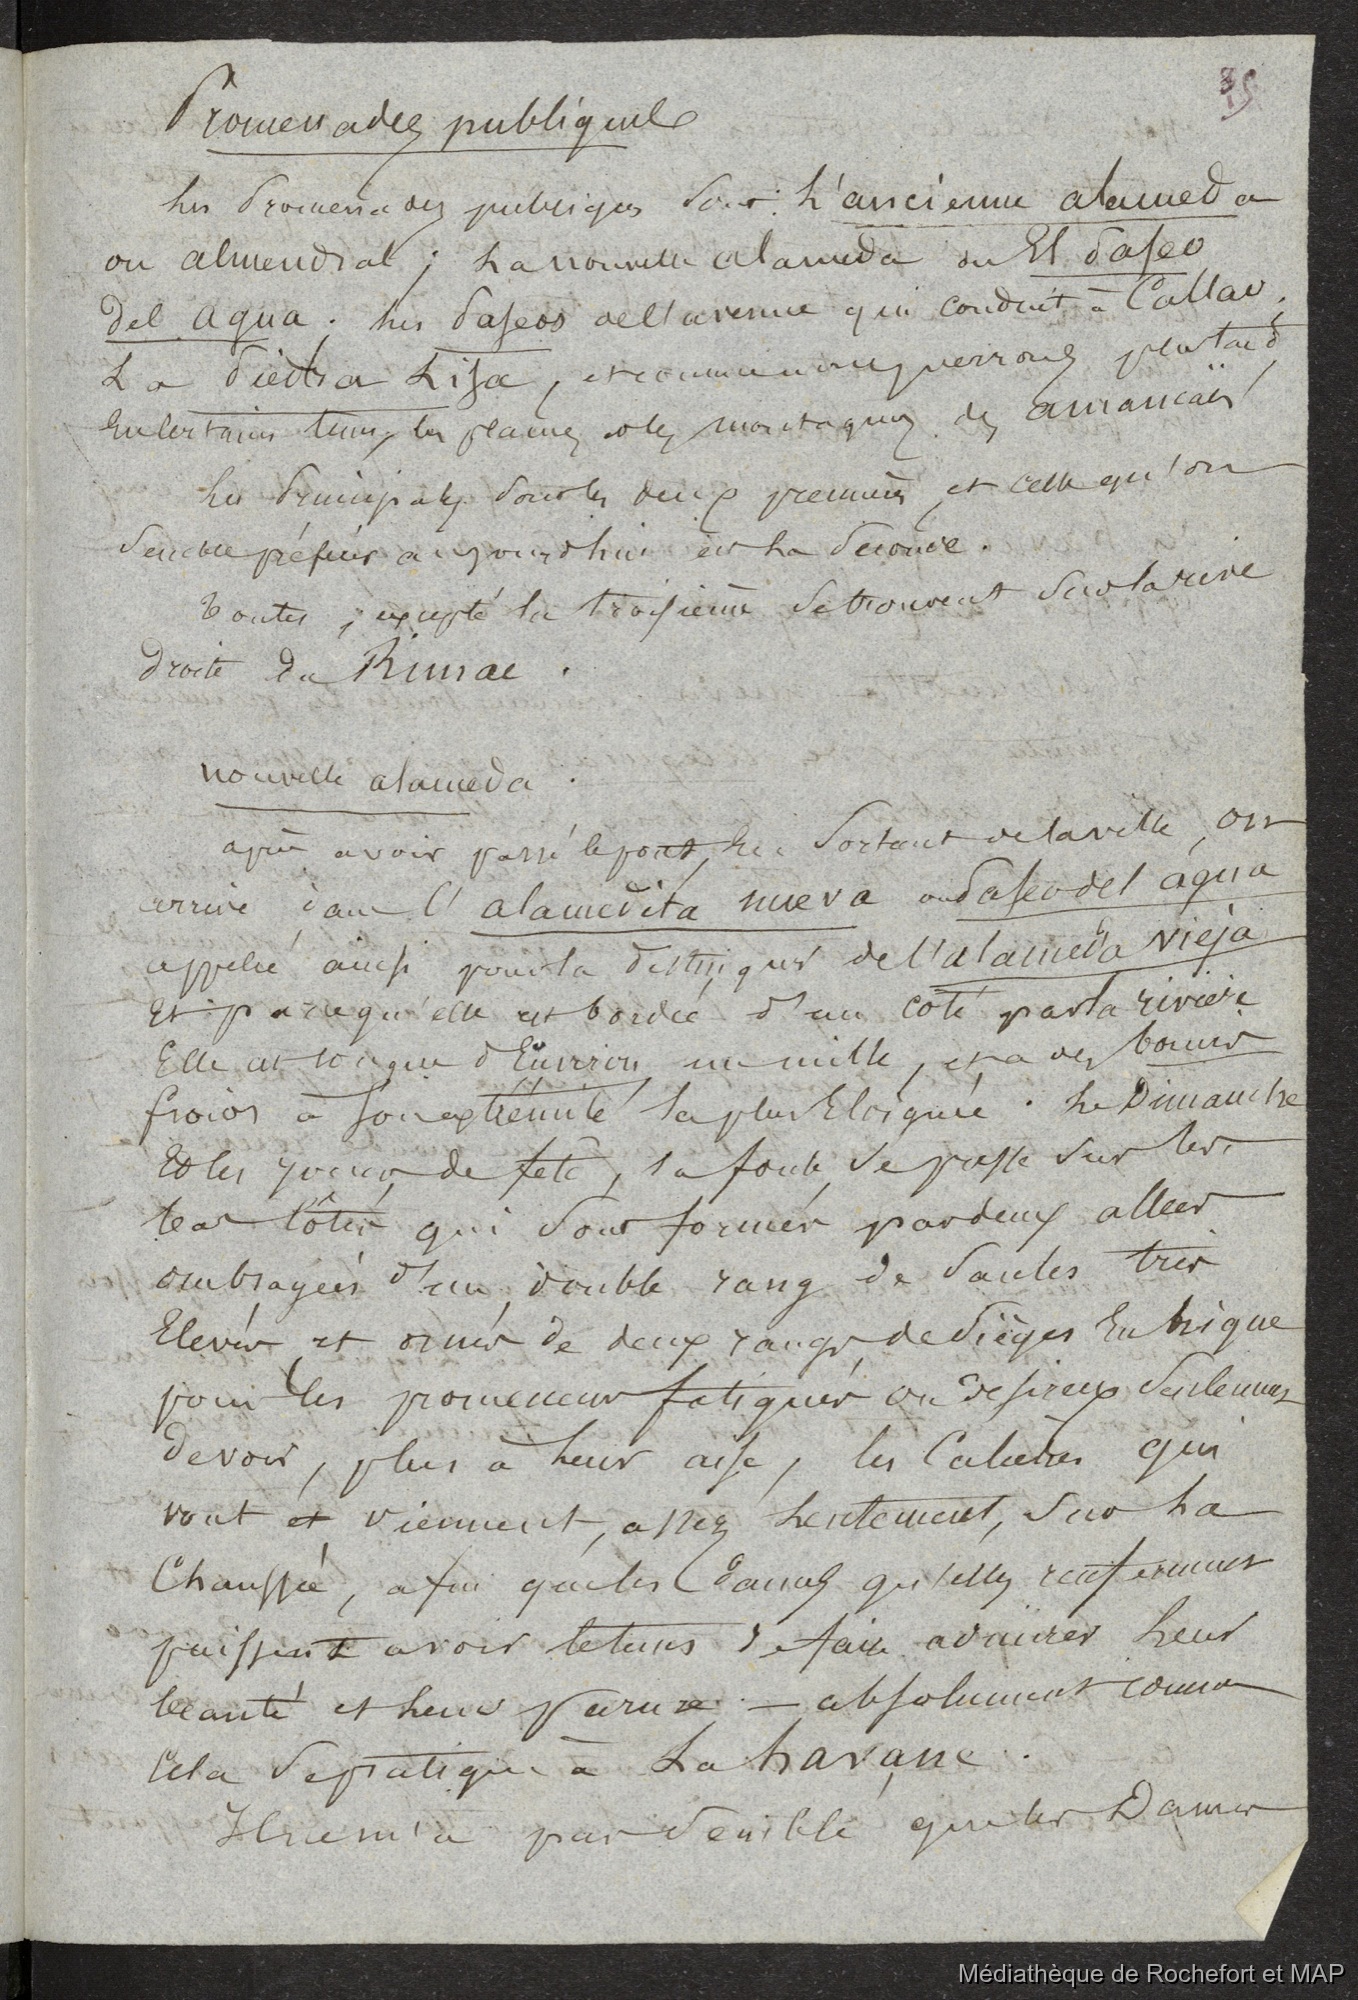 35
Promenades publiques
Les Promenades publiques sont : L'ancienne alameda
ou almendral ; La nouvelle alameda ou El Paseo
del agua ; Les Paseos de l'avenue qui conduit à Callao ;
La Piedra Lisa, et comme nous verrons plus tard,
En certains tems, les plaines et les montagnes des amancaës
Les Principales sont les deux premières, et celle qu'on
semble préférer aujourdhui est La Seconde.
Toutes, excepté la troisième se trouvent sur la rive
droite du Rimac.
nouvelle alameda.
après avoir passé le pont, En sortant de la ville, on
arrive dans l'alamedita nueva ou Paseo del agua
appelée ainsi pour la distinguer de l'alameda vieja
Et parcequ'elle est bordée d'un coté par la rivière
Elle est longue d'Environ un mille, et a des bains
froids à son extrémité la plus Eloignée. Le Dimanche
Et les jours de fête, la foule se passe sur les
bas côtés qui sont formés par deux allées
ombragées d'un double rang de saules très
Elevés, et ornés de deux rangs de sièges En brique
pour les promeneurs fatigués ou désireux seulement
de voir, plus à leur aise, les Calèches qui
vont et viennent, assez Lentement, sur La
Chaussée, afin que les Dames qu'elles renferment
puissent avoir le tems de faire admirer Leur
beauté et Leur parure — absolument comme
Cela se pratique à La havane.
Il ne m'a pas semblé que les Dames
Médiathèque de Rochefort et MAP